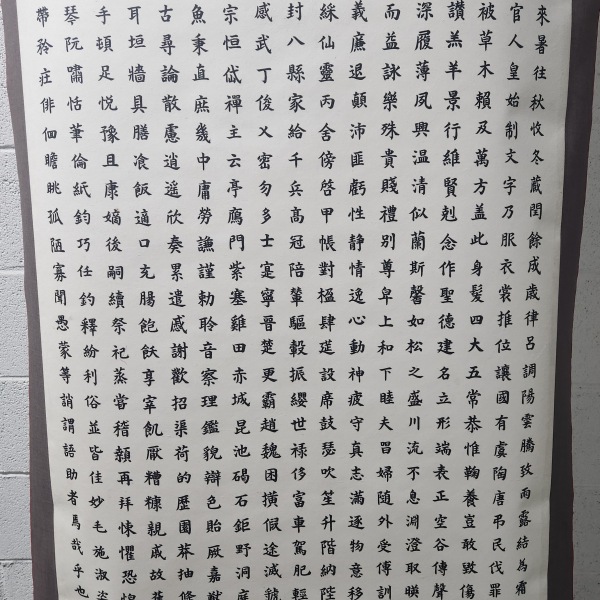 來暑往秋收冬藏閏餘成歲律呂調陽雲騰致雨露結為霜
官人皇始制文字乃服衣裳推位讓國有虞陶唐弔民伐罪
被草木賴及萬方蓋此身髮四大五常恭惟鞠養豈敢毀傷
讚羔羊景行維賢剋念作聖德建名立形端表正空谷傳聲
深履薄夙興溫清似蘭斯馨如松之盛川流不息淵澄取暎
而益詠樂殊貴賤禮別尊卑上和下睦夫唱婦隨外受傅訓
義廉退顛沛匪虧性靜情逸心動神疲守真志滿逐物意移
綵仙靈丙舍傍啓甲帳對楹肆筵設席鼓瑟吹笙升階納陛
封八縣家給千兵高冠陪輦驅轂振纓世祿侈富車駕肥輕
感武丁俊乂密勿多士寔寧晉楚更霸趙魏困橫假途滅虢
宗恒岱禪主云亭鴈門紫塞雞田赤城昆池碣石鉅野洞庭
魚秉直庶幾中庸勞謙謹勅聆音察理鑑貌辯色貽厥嘉猷
古尋論散慮逍遙欣奏累遣慼謝歡招渠荷的歷園莽抽條
耳垣牆具膳飡飯適口充腸飽飫享宰飢厭糟糠親戚故舊
手頓足悅豫且康嫡後嗣續祭祀蒸嘗稽顙再拜悚懼恐惶
琴阮嘯恬筆倫紙鈞巧任釣釋紛利俗並皆佳妙毛施淑姿
帶矜庄徘徊瞻眺孤陋寡聞愚蒙等誚謂語助者焉哉乎也